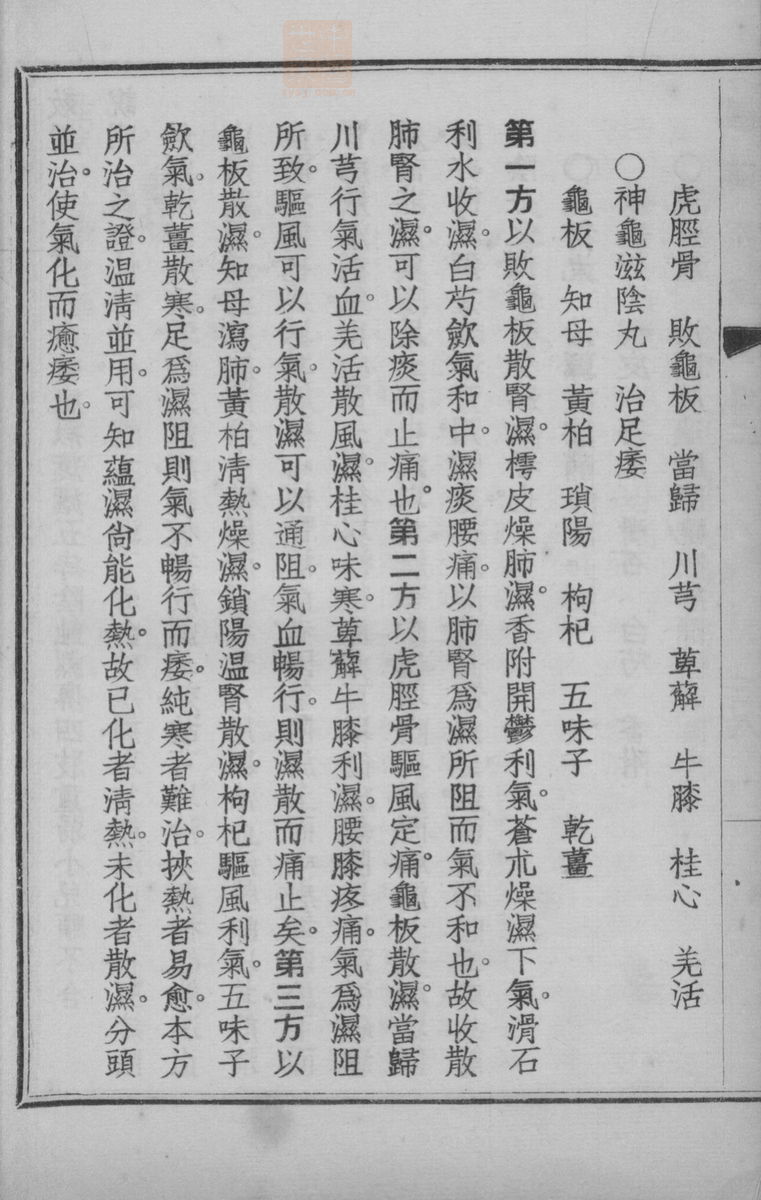 虎脛骨　敗龜板　當歸　川芎　萆薢　牛膝　桂心　羌活
〇神龜滋陰丸　治足痿
龜板　知母　黃柏　瑣陽　枸杞　五味子　乾薑
第一方以敗龜板散腎濕。樗皮燥肺濕。香附開鬱利氣。蒼朮燥濕下氣。滑石
利水收濕。白芍歛氣和中。濕痰腰痛。以肺腎爲濕所阻而氣不和也。故收散
肺腎之濕。可以除痰而止痛也。第二方以虎脛骨驅風定痛。龜板散濕。當歸
川芎行氣活血。羌活散風濕。桂心味寒。萆薢牛膝利濕。腰膝疼痛。氣爲濕阻
所致。驅風可以行氣。散濕可以通阻。氣血暢行。則濕散而痛止矣。第三方以
龜板散濕。知母瀉肺。黃柏淸熱燥濕。鎖陽温腎散濕。枸杞驅風利氣。五味子
歛氣。乾薑散寒。足爲濕阻則氣不暢行而痿。純寒者難治。挾熱者易愈。本方
所治之證。温淸並用。可知蘊濕尙能化熱。故已化者淸熱。未化者散濕。分頭
並治。使氣化而癒痿也。